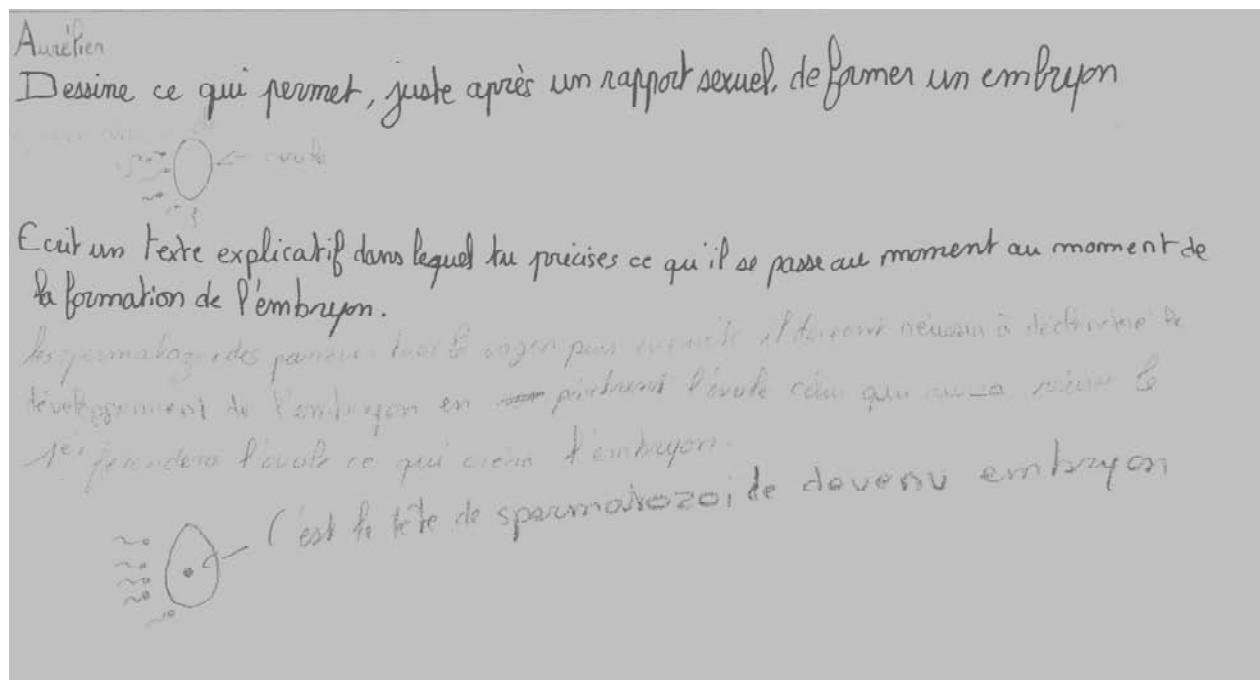 Aurélien
Dessine ce qui permet, juste après un rapport sexuel, de former un embryon
ovule
Ecrit un texte explicatif dans lequel tu précises ce qu'il se passe au moment au moment de
la formation de l'embryon.
les spermatozoïdes par le vagin puis ensuite il doivent réussir à de
développement de l'embryon en l'ovule celui qui aura réussi le
1er fecondera l'ovule ce qui créera l'embryon.
C'est la tête de spermatozoide devenu embryon